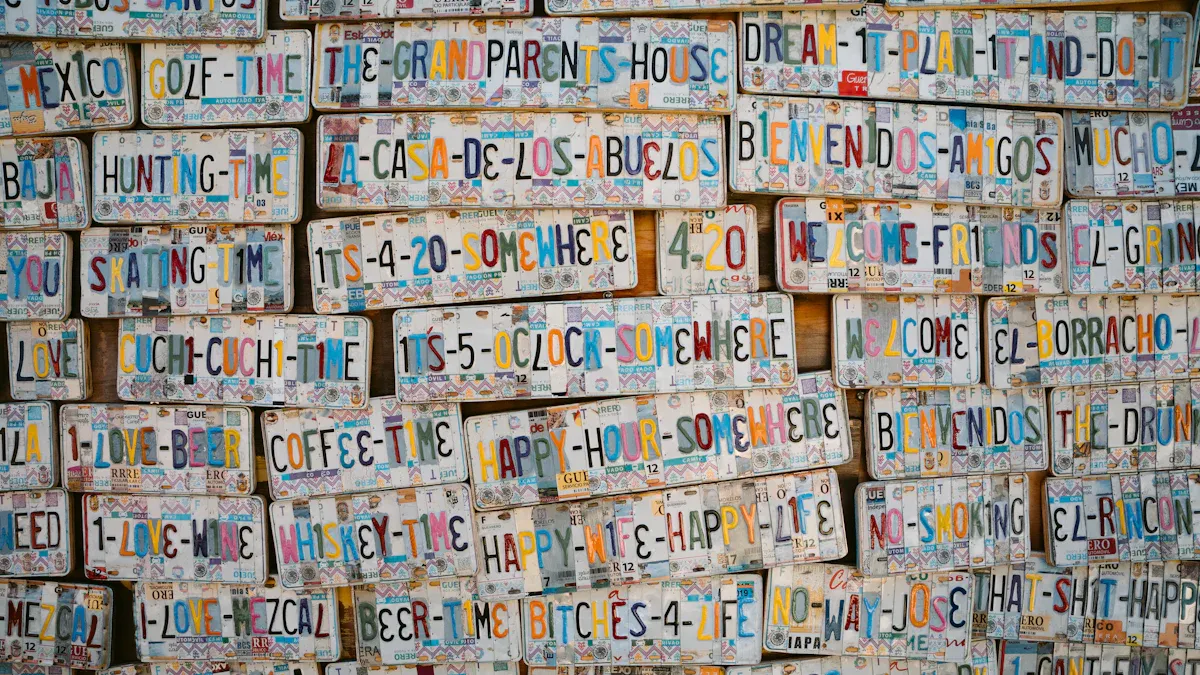 -MEX1CO
GOLF-TIME
THE-GRANDPARENTS-HOUSE
DREAM-1T-PLAN-1T-AND-DO-1T
BAJA
HUNT1NG-T1ME
LA-CASA-DE-LOS-ABUELOS
B1ENVEN1DOS-AM1GOS
MUCHO-
YOU
SKAT1NG-T1ME
1TS-4-20-SOMEWHERE
4-20
WELCOME-FR1ENDS
EL-GR1N
LOVE
CUCH1-CUCH1-T1ME
1TS-5-OCLOCK-SOMEWHERE
WELCOME
EL-BORRACHO-
1LA
1-LOVE-BEER
COFFEE-T1ME
HAPPY-HOUR-SOMEWHERE
B1ENVEN1DOS
THE-DRUN
WEED
1-LOVE-W1NE
WH1SKEY-T1ME
HAPPY-W1FE-HAPPY-L1FE
NO-SMOK1NG
EL-R1NCON
MEZCAL
1-LOVE-MEZCAL
BEER-T1ME
B1TCHES-4-L1FE
NO-WAY-JOSE
HAT-SH1T-HAPP
1-CANT-F